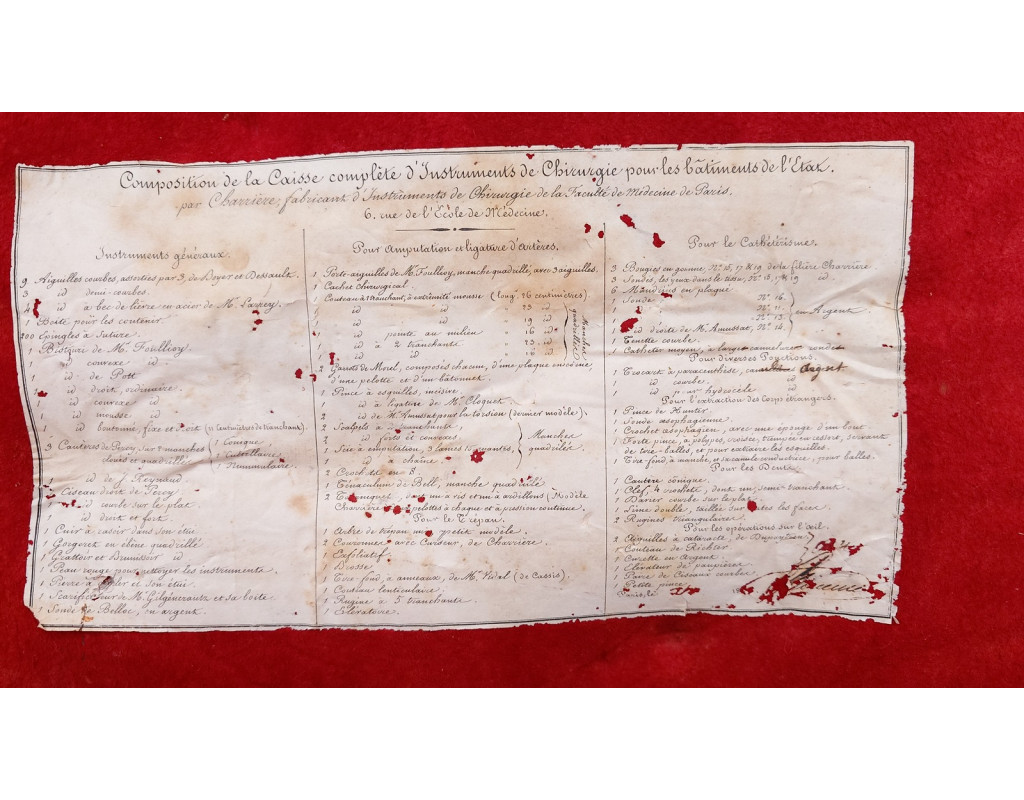 Composition de la Caisse complète d'Instruments de Chirurgie pour les bâtiments de l'Etat.
par Charrière, fabricant d'Instruments de Chirurgie de la Faculté de Médecine de Paris.
6. rue de l'École de Médecine.
Instruments généraux.
9 Aiguilles courbes assorties par 3, de Boyer et Dessault.
3 id demi-courbes.
4 id à bec de lièvre en acier de M. Larrey.
1 Boite pour les contenir.
200 Epingles à Suture.
1 Bistouri de M. Foullioy
1 " convexe id
1 id de Pott
1 id droit, ordinaire.
1 id convexe id
1 id mousse id
1 id boutonné fixe et droit (11 Centimètres de tranchant).
3 Cautères de Percy sur 2 manches
dont et quadrillé
1 Conique
1 Cutellaire
1 Nummulaire
1 id de J. Reynaud.
1 Ciseau droit de Percy.
1 id courbe sur le plat
1 id droit et fort.
1 Cuir à rasoir dans son étui
1 Gorgeret en ébène quadrillé
1 Grattoir et Brunissoir id
1 Peau rouge pour nettoyer les instruments.
1 Pierre à et son étui.
1 Scarificateur de M. Gilgencrantz et sa boite.
1 Sonde de Belloc, en argent.
Pour Amputation et ligature d'Artères.
1 Porte-aiguilles de M. Foullioy, manche quadrillé, avec 3 aiguilles.
1 Cachet Chirurgical.
1 Couteau à 1 tranchant, à extrémité mousse (longr 26 centimètres)
1 id id " 23 id
1 id id " 19 id
1 id pointe au milieu " 16 id
1 id à 2 tranchants " 23 id
1 id id " 16 id
Manches quadrillés
2 Garrot de Morel, composés chacun, d'une plaque en corne,
d'une pelotte et d'un bâtonnet.
1 Pince à esquilles, incisive.
1 id à ligature de Mr. Cloquet.
2 id de Mr. Amussat pour la torsion (dernier modèle).
2 Scalpels à 2 tranchants,
2 id forts et convexes
1 Scie à amputation, 3 lames tournantes,
1 id à chaine.
Manches
quadrillés
2 Crochet en S
1 Ténaculum de Bell, manche quadrillé
2 Tourniquet, dont un à vis et un à ardillons (Modèle
Charrière pelottes à chaque et à pression continue.
Pour le Trépan.
1 Arbre de trépan petit modèle.
2 Couronnes avec Curseur, de Charrière.
1 Exfoliatif
1 Brosse
1 Tire-fond, à anneaux, de Mr. Vidal (de Cassis).
1 Couteau lenticulaire
1 Rugine à 5 tranchants.
1 Elévatoire.
Pour le Cathétérisme.
3 Bougies en gomme, Nos. 15, 17 & 19 de la filière Charrière.
3 Sondes, les yeux dans les axes, Nos. 15, 17 & 19 id
6 Mandrins en plaqué
1 Sonde No. 16.
1 " No. 11.
1 " No. 13.
1 id droite de M. Amussat, No. 14.
en Argent
1 Tenette courbe.
1 Cathéter moyen, à large cannelure ronde
Pour diverses Ponctions.
1 Trocart à paracenthèse, canule Argent
1 id courbe. id
1 id pour hydrocèle id
Pour l'extraction des Corps étrangers.
1 Pince de Hunter.
1 Sonde œsophagienne.
1 Crochet œsophagien, avec une éponge d'un bout
1 Forte pince, à polypes, croisée, trempée en ressort, servant
de tire-balles, et pour extraire les esquilles.
1 Tire-fond, à manche, et sa canule conductrice, pour balles.
Pour les Dents.
1 Cautère conique.
1 Clef, 4 crochets, dont un semi-tranchant.
1 Davier courbe sur le plat
1 Lime double, taillée sur toutes les faces.
2 Rugines triangulaires.
Pour les opérations sur l'œil.
2 Aiguilles à cataracte, de Dupuytren
1 Couteau de Richter
1 Curette en Argent.
1 Elévateur de paupières
1 Paire de Ciseaux courbes
1 Petite pince
Paris, le